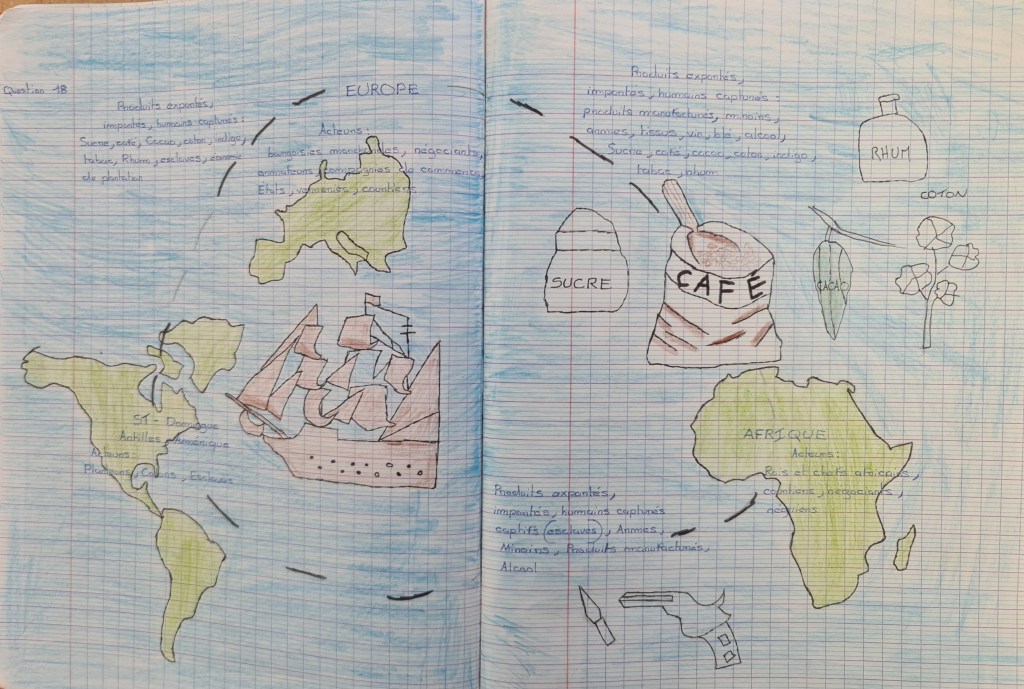 Question 18
Produits exportés,
importés, humains capturés :
Sucre, café, Cacao, coton, indigo,
tabac, Rhum, esclaves,
de plantation
EUROPE
Acteurs :
bourgeoisies marchandes, négociants,
armateurs, compagnies de commerce,
Etats, courtiers
ST - Domingue
Antilles, Amérique
Acteurs :
Planteurs, Colons, Esclaves
Produits exportés,
importés, humains capturés :
produits manufacturés, miroirs,
armes, tissus, vin, blé, alcool,
Sucre, café, cacao, coton, indigo,
tabac, rhum
RHUM
COTON
SUCRE
CAFÉ
CACAO
AFRIQUE
Acteurs :
Rois et chefs africains,
courtiers, négociants,
négriers
Produits exportés,
importés, humains capturés
captifs (esclaves), Armes,
Miroirs, Produits manufacturés,
Alcool